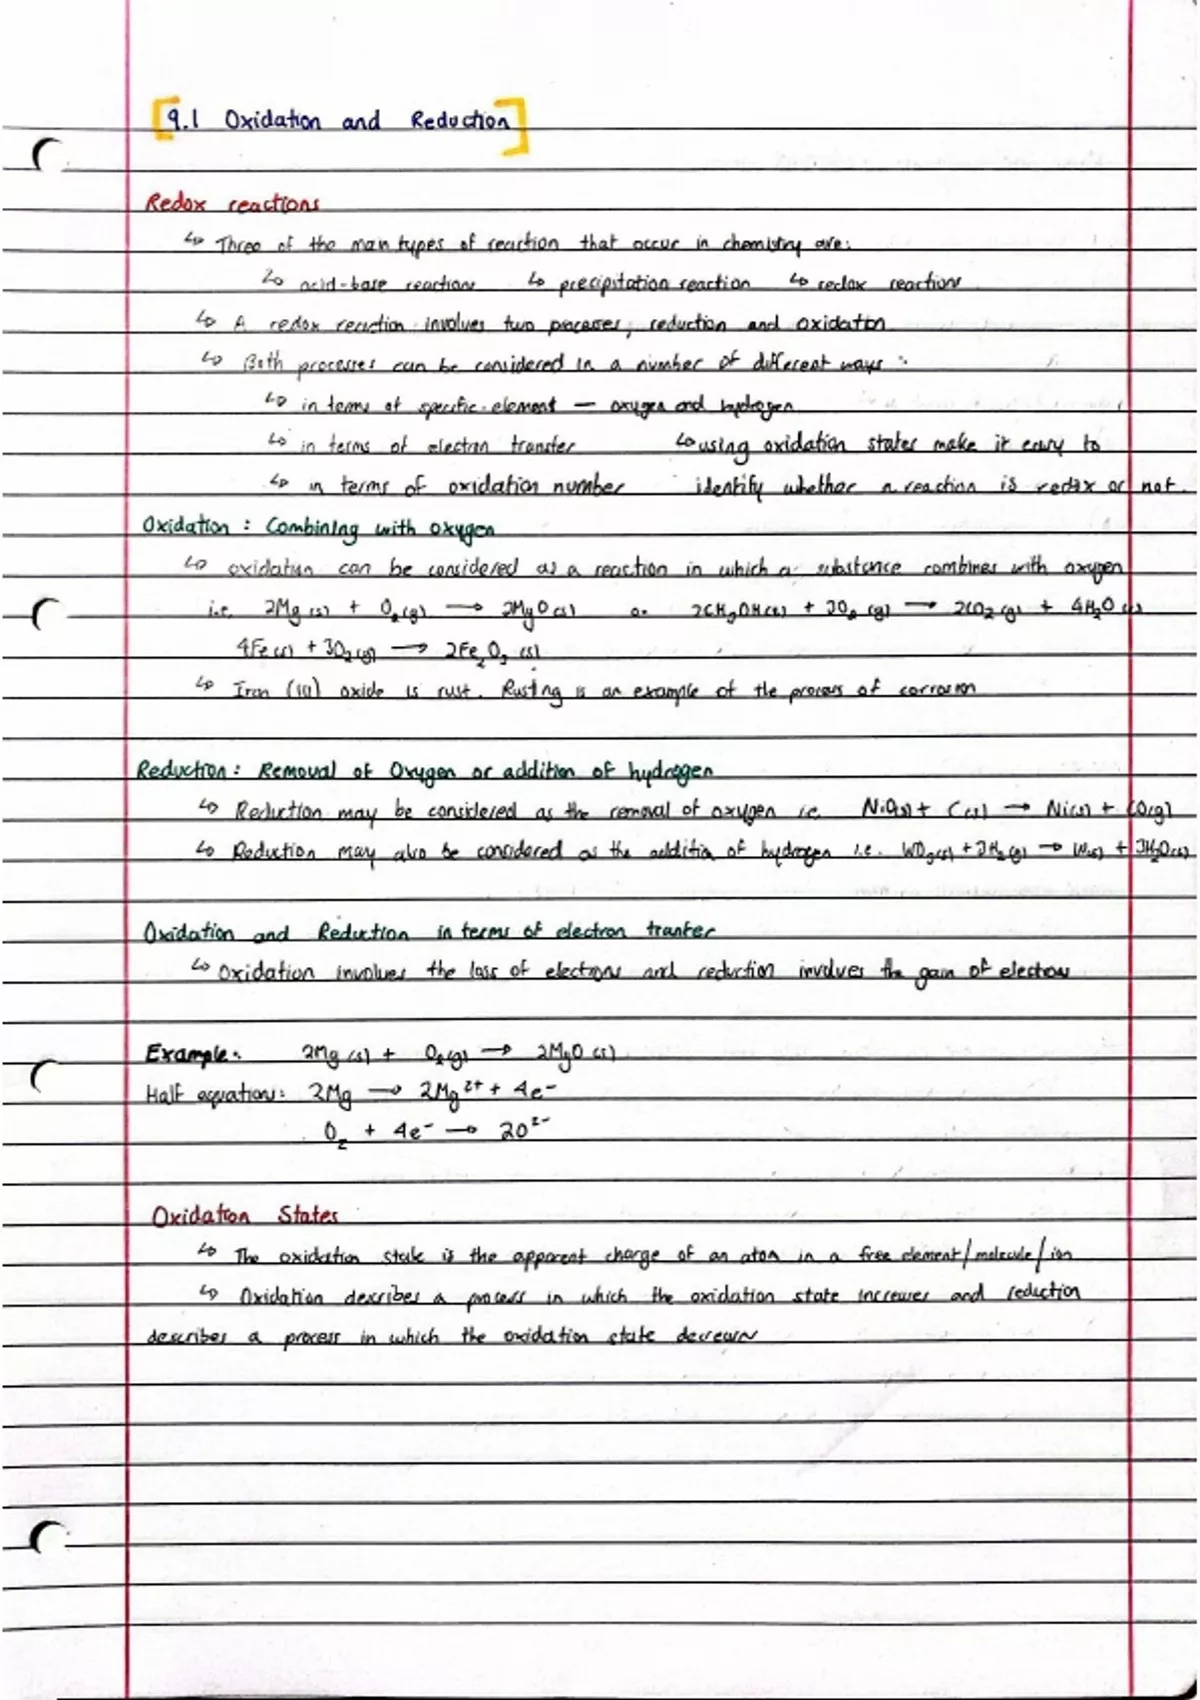 9.1 Oxidation and Reduction
Redox reactions
↳ Three of the main types of reaction that occur in chemistry are:
↳ acid-base reactions ↳ precipitation reaction ↳ redox reactions
↳ A redox reaction involves two processes, reduction and oxidation
↳ Both processes can be considered in a number of different ways:
↳ in terms of specific element — oxygen and hydrogen
↳ in terms of electron transfer ↳ using oxidation states make it easy to
↳ in terms of oxidation number identify whether a reaction is redox or not.
Oxidation : Combining with oxygen
↳ oxidation can be considered as a reaction in which a substance combines with oxygen
i.e. 2Mg (s) + O₂ (g) → 2MgO (s) or 2CH₃OH + 3O₂ (g) → 2CO₂ (g) + 4H₂O
4Fe (s) + 3O₂ (g) → 2Fe₂O₃ (s)
↳ Iron (III) oxide is rust. Rusting is an example of the process of corrosion
Reduction : Removal of Oxygen or addition of hydrogen
↳ Reduction may be considered as the removal of oxygen i.e. NiO(s) + C (s) → Ni(s) + CO(g)
↳ Reduction may also be considered as the addition of hydrogen i.e. WO₃(s) + 3H₂ (g) → W(s) + 3H₂O
Oxidation and Reduction in terms of electron tranfer
↳ Oxidation involves the loss of electrons and reduction involves the gain of electrons
Example: 2Mg (s) + O₂(g) → 2MgO (s)
Half equations: 2Mg → 2Mg²⁺ + 4e⁻
O₂ + 4e⁻ → 2O²⁻
Oxidation States
↳ The oxidation state is the apparent charge of an atom in a free element/molecule/ion
↳ Oxidation describes a process in which the oxidation state increases and reduction
describes a process in which the oxidation state decreases